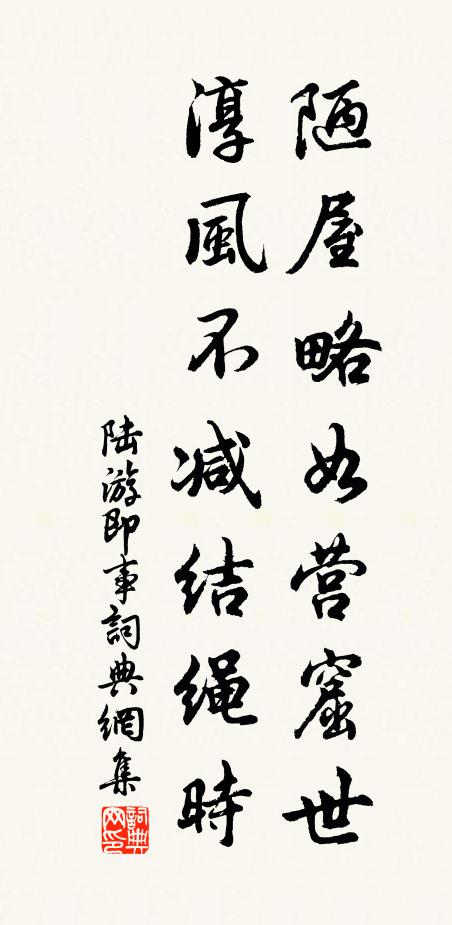 陋屋略如营窟世
淳風不减结绳時
陆游即事詞典網集
詞典网印